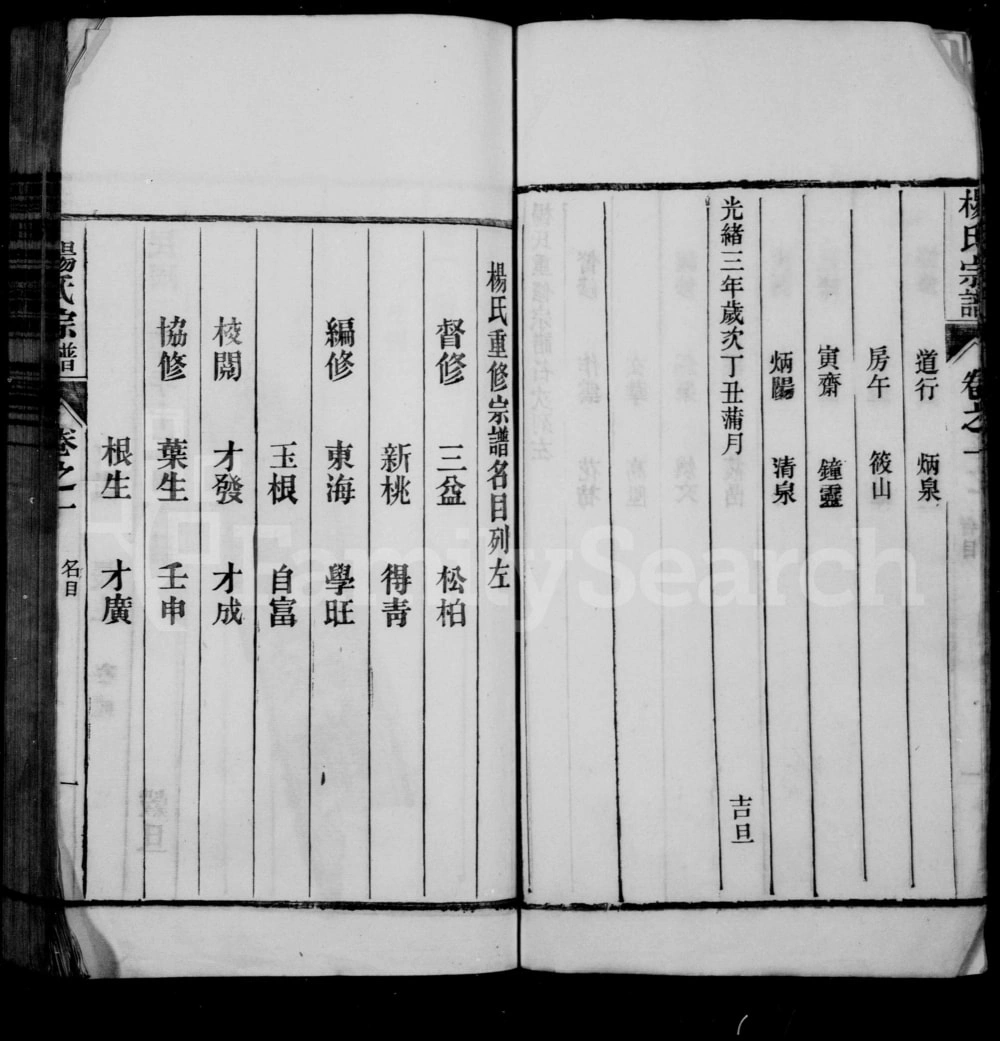 楊氏宗譜 卷之一
道行 炳泉
房午 筱山
寅齋 鐘靈
炳陽 清泉
光緒三年歲次丁丑蒲月 吉旦
楊氏重修宗譜名目列左
督修 三益 松柏
新桃 得青
編修 東海 學旺
玉根 自富
校閱 才發 才成
協修 葉生 壬申
根生 才廣
楊氏宗譜 卷之一 名目 一
FamilySearch